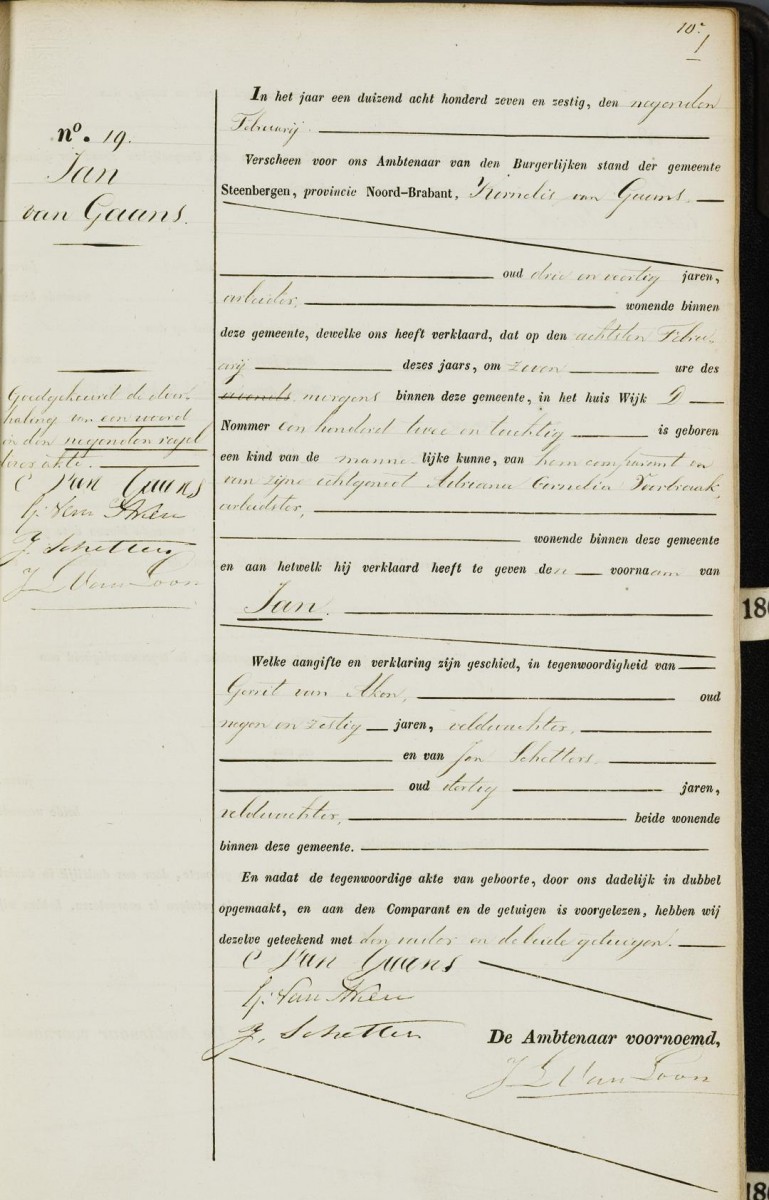 10.
1
n⁰. 19.
Jan
van Gaans.
In het jaar een duizend acht honderd zeven en zestig, den negenden
Februarij
Verscheen voor ons Ambtenaar van den Burgerlijken stand der gemeente
Steenbergen, provincie Noord-Brabant, Kornelis van Gaans.
oud drie en veertig jaren,
arbeider, wonende binnen
deze gemeente, dewelke ons heeft verklaard, dat op den achtsten Febru-
arij dezes jaars, om zeven ure des
avonds morgens binnen deze gemeente, in het huis Wijk D
Nommer een honderd twee en tachtig is geboren
een kind van de mannelijke kunne, van hem comparant en
van zijne echtgenoot Adriana Cornelia Verbraak,
arbeidster,
wonende binnen deze gemeente
en aan hetwelk hij verklaard heeft te geven den voornaam van
Jan.
Welke aangifte en verklaring zijn geschied, in tegenwoordigheid van
Gerrit van Aken, oud
negen en zestig jaren, veldwachter,
en van Jan Schetters
oud dertig jaren,
veldwachter, beide wonende
binnen deze gemeente.
En nadat de tegenwoordige akte van geboorte, door ons dadelijk in dubbel
opgemaakt, en aan den Comparant en de getuigen is voorgelezen, hebben wij
dezelve geteekend met den vader en de beide getuigen.
C van Gaans
G. van Aken
J. Schetters
De Ambtenaar voornoemd,
J L Van Loon
Goedgekeurd de door-
haling van een woord
in den negenden regel
dezer akte.
C van Gaans
G. van Aken
J. Schetters
J L Van Loon
186
186